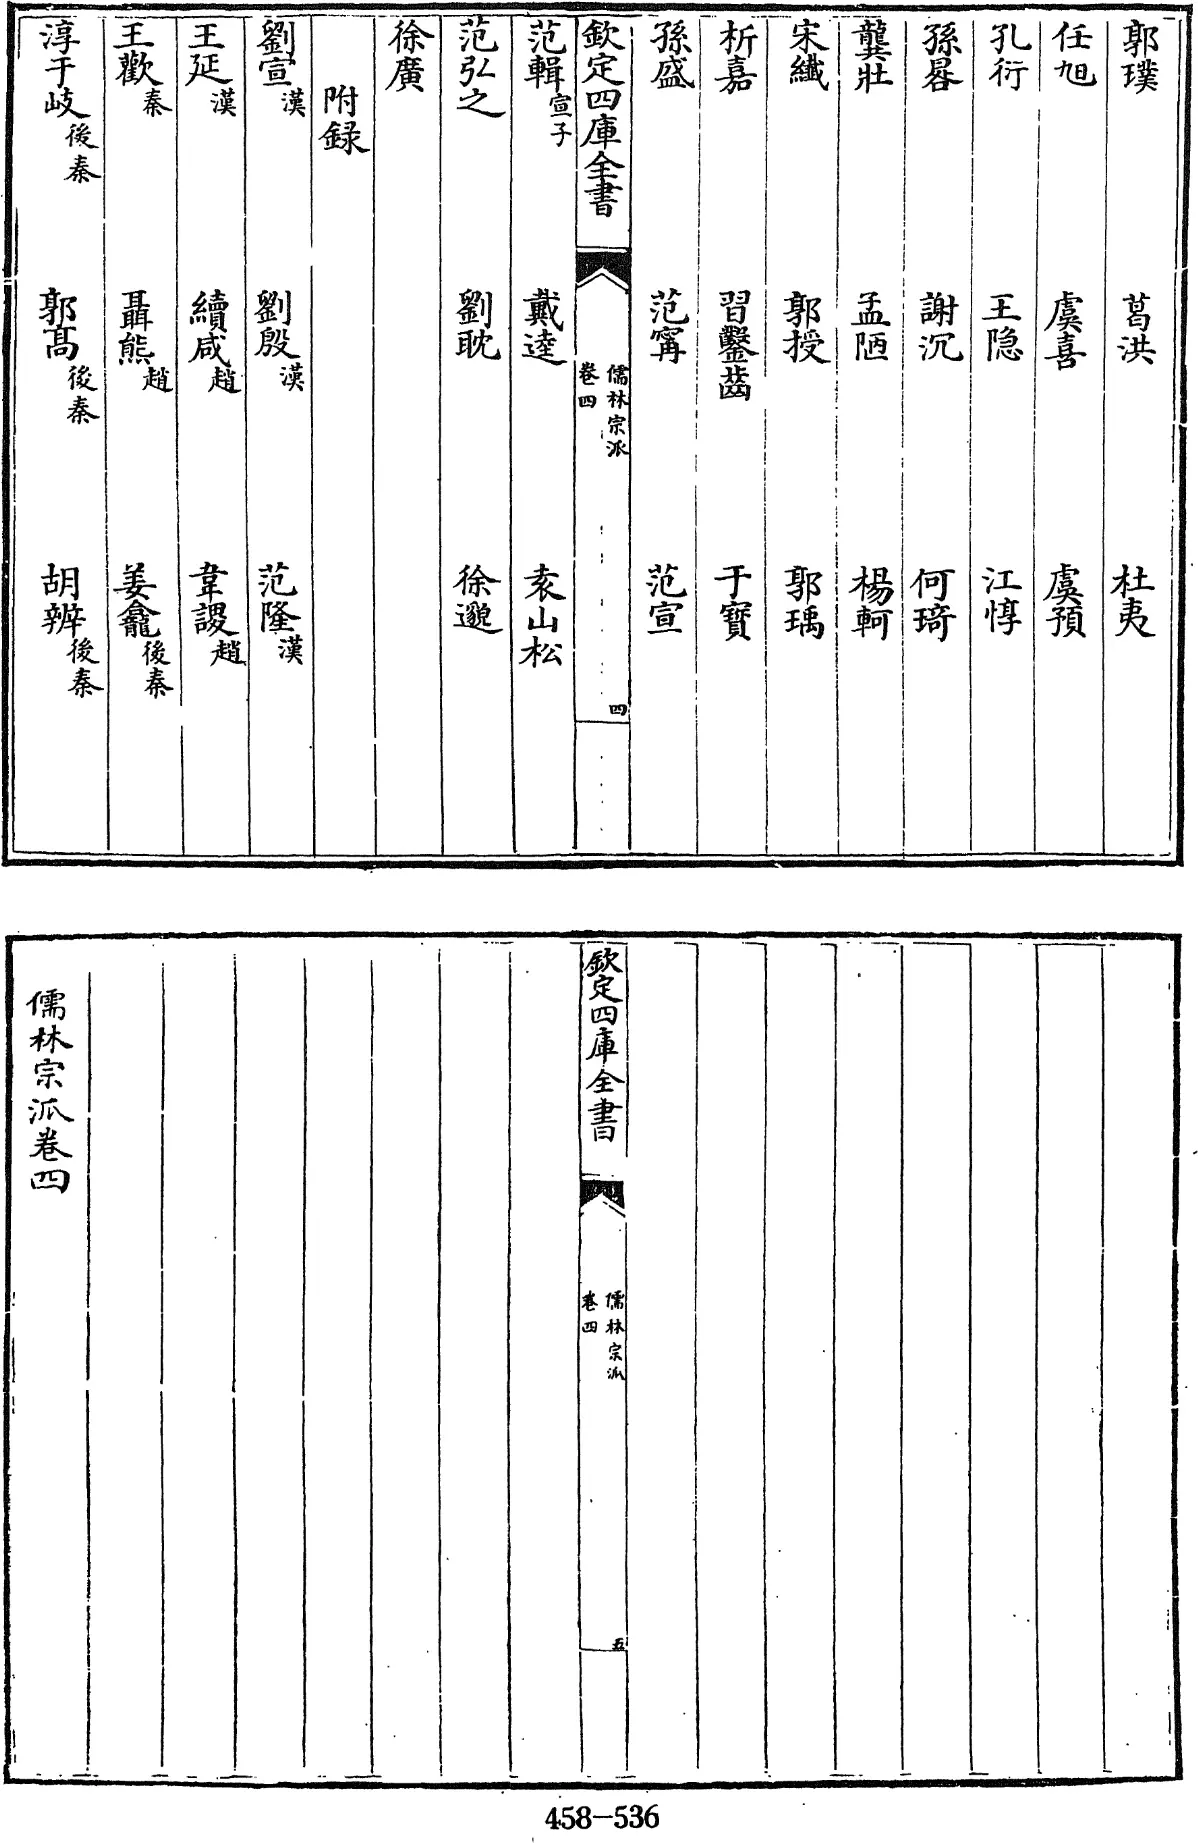 郭璞 葛洪 杜夷
任旭 虞喜 虞預
孔衍 王隐 江惇
孫晷 謝沉 何琦
龔壯 孟陋 楊軻
宋纖 郭授 郭瑀
析嘉 習鑿齒 于寶
孫盛 范甯 范宣
欽定四庫全書 儒林宗派 卷四 四
范輯宣子 戴逵 袁山松
范弘之 劉耽 徐邈
徐廣
附録
劉宣漢 劉殷漢 范隆漢
王延漢 續咸趙 韋謏趙
王歡秦 聶熊趙 姜龕後秦
淳于岐後秦 郭髙後秦 胡辨後秦
欽定四庫全書 儒林宗派 卷四 五
儒林宗派卷四
458-536